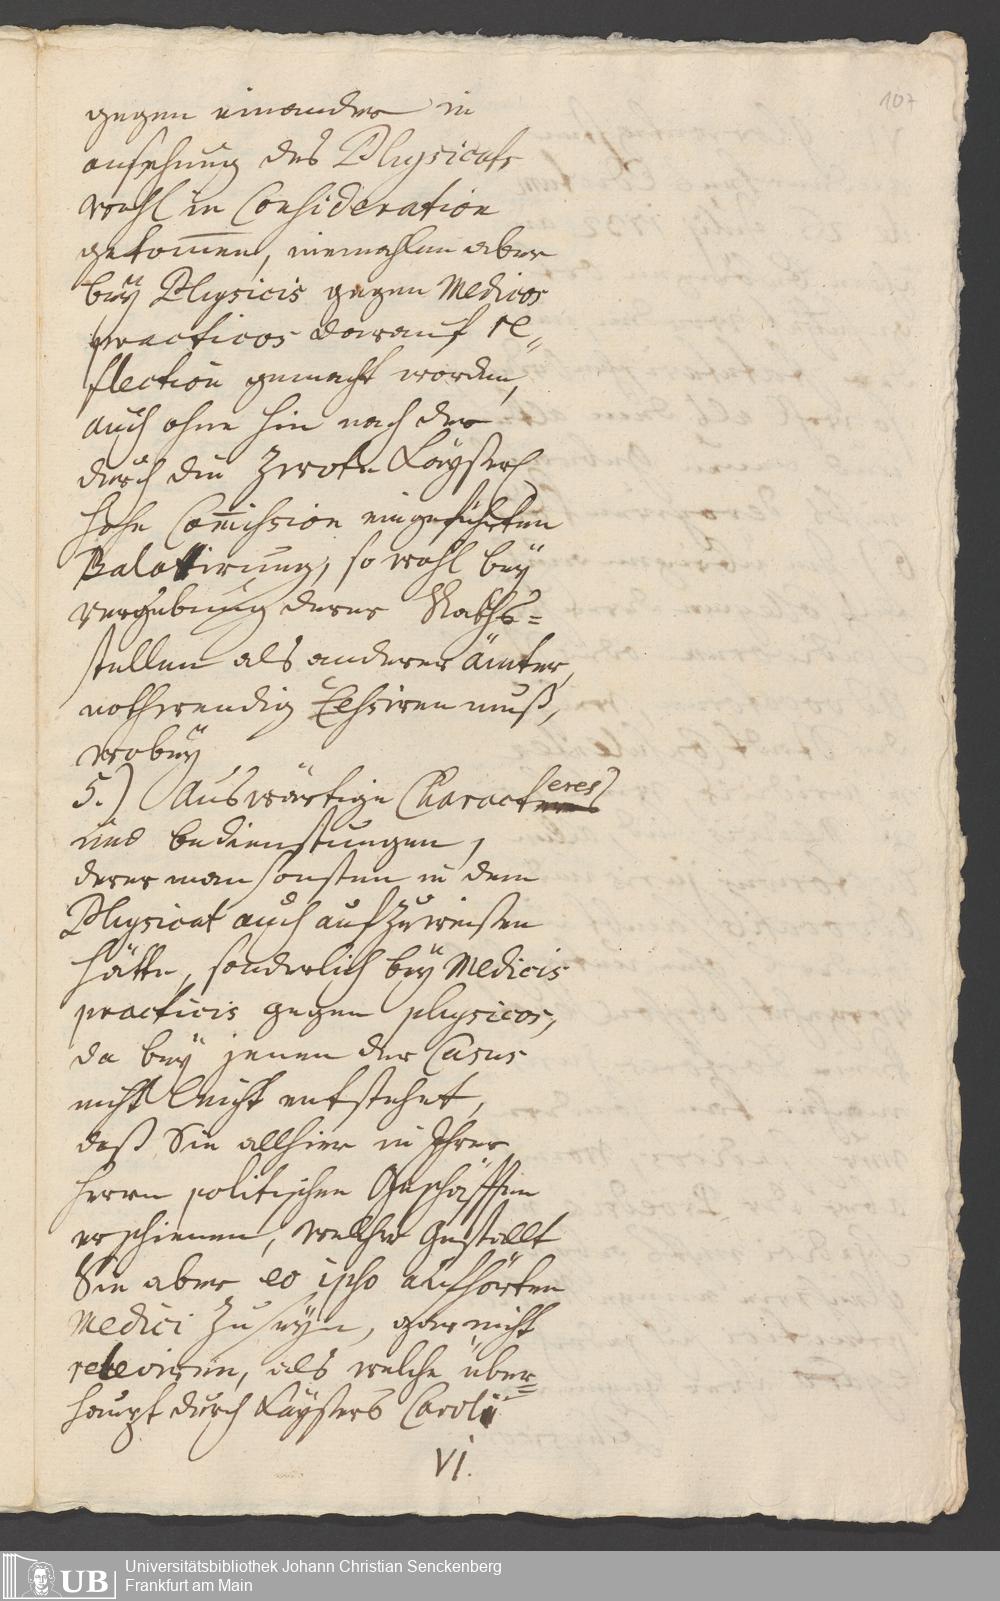 107
gegen einander in
ansehung des Physicats
wohl in Consideration
gekommen, niemahlen aber
bey Physicis gegen Medicos
practicos darauf re„
flection gemacht worden,
auch ohne hin nach der
durch die Zwote Kayserl.
hohe Commission eingeführten
Balottirung, so wohl bey
vergebung derer Raths=
stellen als anderer ämter,
nothwendig Cessiren muß,
wobey
5.) Auswärtige Characteres
und bedienstungen,
derer man sonsten in dem
Physicat auch aufzuweisen
hätte, sonderlich bey Medicis
practicis gegen physicos,
da bey jenen der Casus
nicht leicht entstehet,
daß Sie allhier in Ihrer
Herrn politischen Geschäfften
erschienen, welcher Gestallt
Sie aber eo ipso aufhörten
Medici zu seyn, gar nicht
releviren, als welche über=
haupt durch Kaysers Caroli
VI.
UB Universitätsbibliothek Johann Christian Senckenberg
Frankfurt am Main